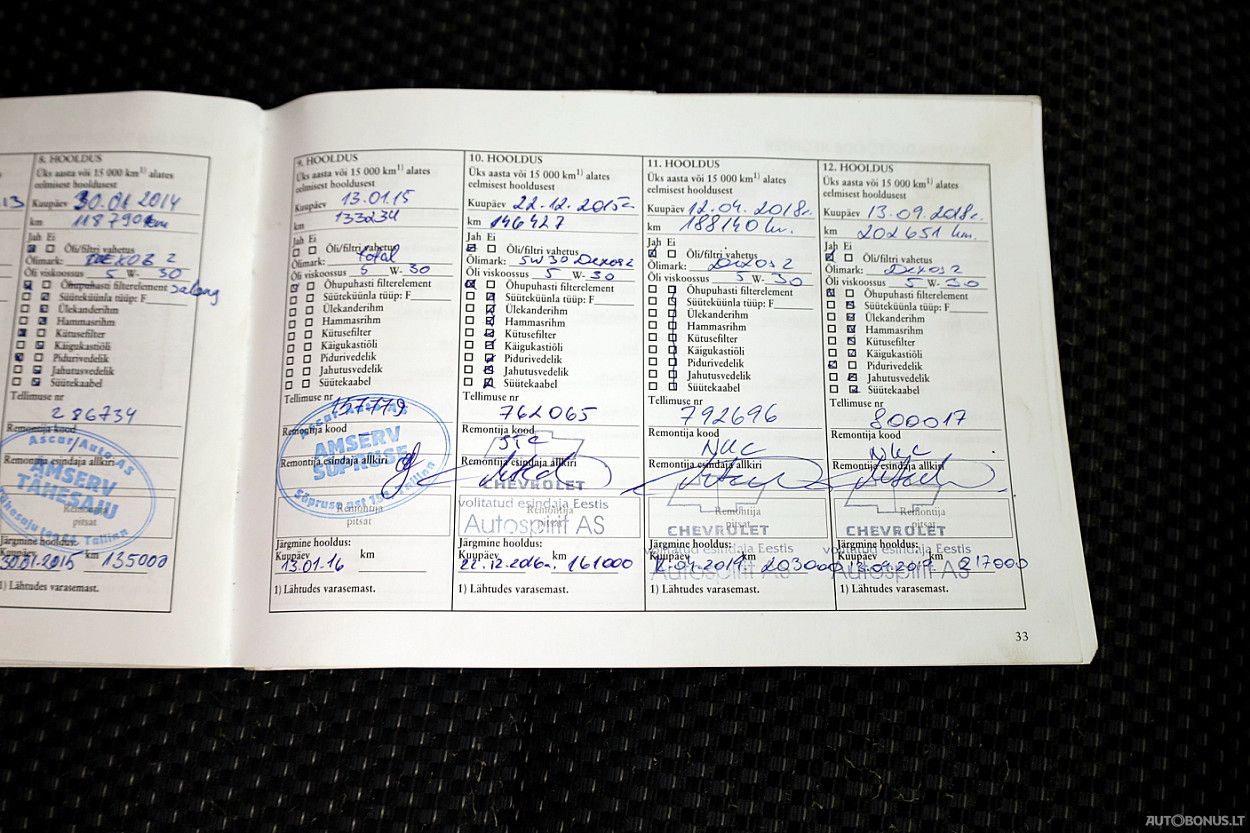 13
8. HOOLDUS
Üks aasta või 15 000 km1) alates
eelmisest hooldusest
Kuupäev 30.01 2014
km 118790km
Jah Ei
Õli/filtri vahetus
Õlimark: DEXOS 2
Õli viskoossus 5 W- 30
Õhupuhasti filterelement salong
Süüteküünla tüüp: F
Ülekanderihm
Hammasrihm
Kütusefilter
Käigukastiõli
Pidurivedelik
Jahutusvedelik
Süütekaabel
Tellimuse nr
286734
Remontija kood
Ascar Auto AS
Remontija esindaja allkiri
AMSERV
TÄHESAJU
Tähesaju tee Tallinn
Remontija
pitsat
Järgmine hooldus:
Kuupäev km
30.01.2015 135000
1) Lähtudes varasemast.
9. HOOLDUS
Üks aasta või 15 000 km1) alates
eelmisest hooldusest
Kuupäev 13.01.15
km 133234
Jah Ei
Õli/filtri vahetus
Õlimark: Total
Õli viskoossus 5 W- 30
Õhupuhasti filterelement
Süüteküünla tüüp: F
Ülekanderihm
Hammasrihm
Kütusefilter
Käigukastiõli
Pidurivedelik
Jahutusvedelik
Süütekaabel
Tellimuse nr
157779
Ascar Auto AS
Remontija kood
AMSERV
SÜPRUSE
Remontija esindaja allkiri
Sõpruse pst Tallinn
Remontija
pitsat
Järgmine hooldus:
Kuupäev km
13.01.16
1) Lähtudes varasemast.
10. HOOLDUS
Üks aasta või 15 000 km1) alates
eelmisest hooldusest
Kuupäev 22.12.2015г
km 146427
Jah Ei
Õli/filtri vahetus
Õlimark: 5W30 Dexos2
Õli viskoossus 5 W- 30
Õhupuhasti filterelement
Süüteküünla tüüp: F
Ülekanderihm
Hammasrihm
Kütusefilter
Käigukastiõli
Pidurivedelik
Jahutusvedelik
Süütekaabel
Tellimuse nr
762065
Remontija kood
Remontija esindaja allkiri
CHEVROLET
volitatud esindaja Eestis
Remontija
pitsat
Autospirit AS
Järgmine hooldus:
Kuupäev km
22.12.2016г. 161000
1) Lähtudes varasemast.
11. HOOLDUS
Üks aasta või 15 000 km1) alates
eelmisest hooldusest
Kuupäev 12.04.2018г.
km 188140 km.
Jah Ei
Õli/filtri vahetus
Õlimark: Dexos 2
Õli viskoossus 5 W- 30
Õhupuhasti filterelement
Süüteküünla tüüp: F
Ülekanderihm
Hammasrihm
Kütusefilter
Käigukastiõli
Pidurivedelik
Jahutusvedelik
Süütekaabel
Tellimuse nr
792696
Remontija kood
Remontija esindaja allkiri
Remontija
pitsat
CHEVROLET
Järgmine hooldus:
volitatud esindaja Eestis
Kuupäev km
12.04.2019. 203000
Autospirit AS
1) Lähtudes varasemast.
12. HOOLDUS
Üks aasta või 15 000 km1) alates
eelmisest hooldusest
Kuupäev 13.09.2018г.
km 202651 km.
Jah Ei
Õli/filtri vahetus
Õlimark: Dexos 2
Õli viskoossus 5 W- 30
Õhupuhasti filterelement
Süüteküünla tüüp: F
Ülekanderihm
Hammasrihm
Kütusefilter
Käigukastiõli
Pidurivedelik
Jahutusvedelik
Süütekaabel
Tellimuse nr
800017
Remontija kood
Remontija esindaja allkiri
Remontija
pitsat
CHEVROLET
Järgmine hooldus:
volitatud esindaja Eestis
Kuupäev km
13.09.2019. 217000
Autospirit AS
1) Lähtudes varasemast.
33
AUTOBONUS.LT